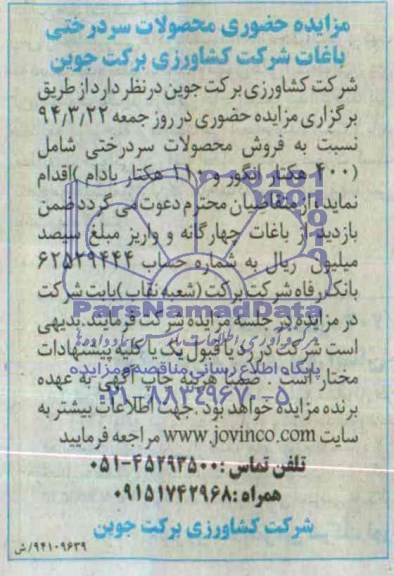 مزایده حضوری محصولات سردرختی
باغات شرکت کشاورزی برکت جوین
شرکت کشاورزی برکت جوین در نظر دارد از طریق
برگزاری مزایده حضوری در روز جمعه ۹۴/۳/۲۲
نسبت به فروش محصولات سردرختی شامل
(۴۰۰ هکتار انگور و ۱۱۰ هکتار بادام) اقدام
نماید. از متقاضیان محترم دعوت می گردد ضمن
بازدید از باغات چهارگانه و واریز مبلغ سیصد
میلیون ریال به شماره حساب ۶۲۵۲۹۴۴۴
بانک رفاه شرکت برکت (شعبه نقاب) بابت شرکت
در مزایده در جلسه مزایده شرکت فرمایند. بدیهی
است شرکت در رد یا قبول یک یا کلیه پیشنهادات
مختار است. ضمنا هزینه چاپ آگهی به عهده
برنده مزایده خواهد بود. جهت اطلاعات بیشتر به
سایت www.jovinco.com مراجعه فرمایید
تلفن تماس: ۴۵۲۹۳۵۰۰-۰۵۱
همراه: ۰۹۱۵۱۷۴۲۹۶۸
شرکت کشاورزی برکت جوین
۹۴۱۰۹۶۳۹/ش
ParsNamadData
پایگاه اطلاع رسانی مناقصه و مزایده
۰۲۱-۸۸۳۴۹۶۷۰-۵